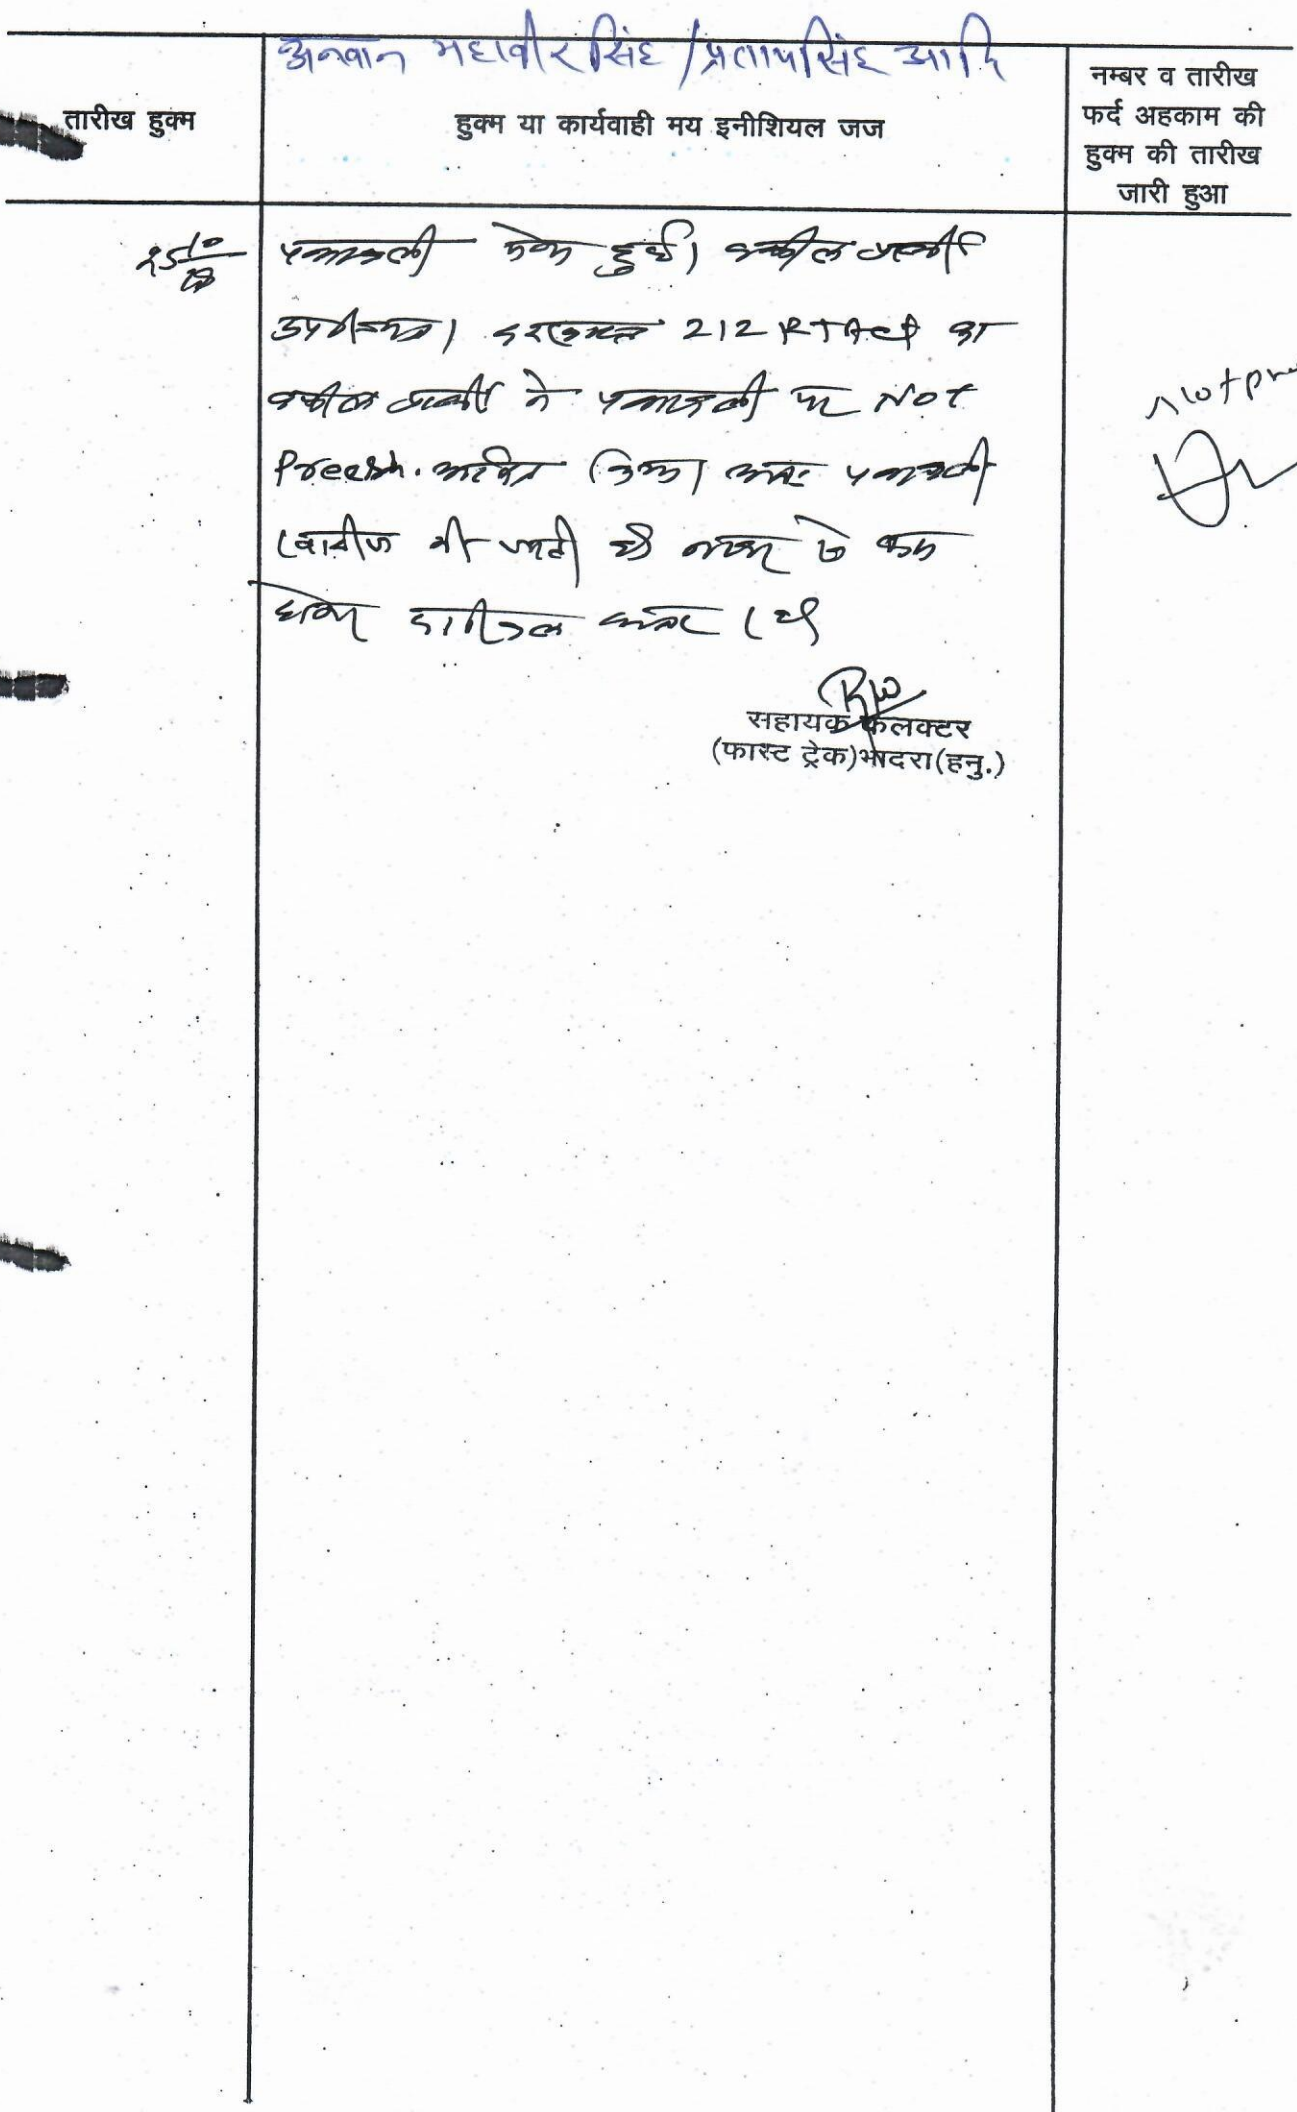 अनवान महावीरसिंह / प्रतापसिंह आदि
तारीख हुक्म
हुक्म या कार्यवाही मय इनीशियल जज
नम्बर व तारीख
फर्द अहकाम की
हुक्म की तारीख
जारी हुआ
पत्रावली पेश हुई। वकील प्रार्थी
उपस्थित। दरख्वास्त 212 RTAct का
वकील प्रार्थी ने पत्रावली पर Not
Press. किया। अतः पत्रावली
खारीज की जाती है। नम्बर से कम
होकर दाखिल दफ्तर हो।
Not pr
सहायक कलक्टर
(फास्ट ट्रेक)भादरा(हनु.)